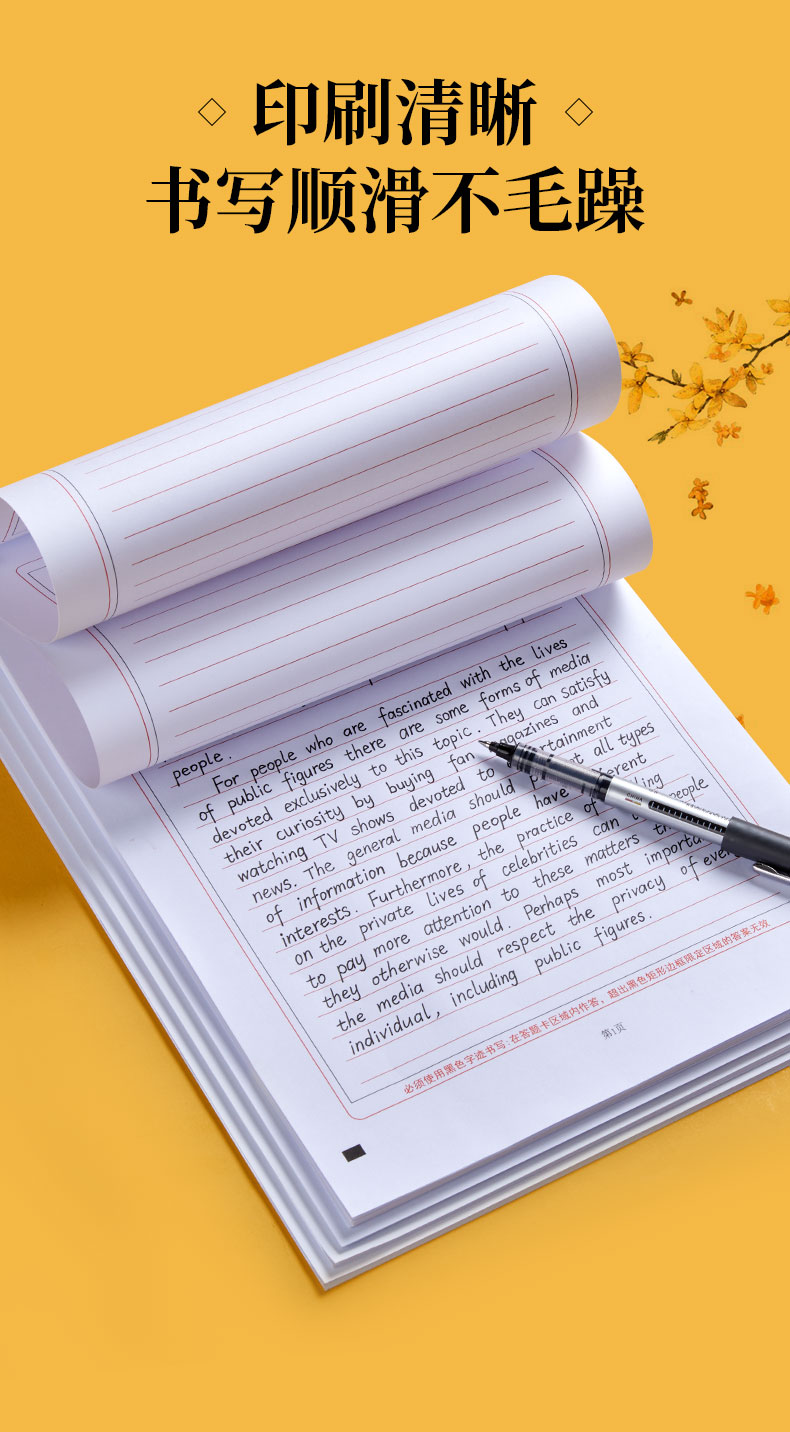 印刷清晰
书写顺滑不毛躁
people.
For people who are fascinated with the lives
of public figures there are some forms of media
devoted exclusively to this topic. They can satisfy
their curiosity by buying fan and
watching TV shows devoted to
news. The general media should all types
of information because people have
interests. Furthermore, the practice of
on the private lives of celebrities can people
to pay more attention to these matters
they otherwise would. Perhaps most
the media should respect the privacy of
individual, including public figures.
必须使用黑色字迹书写;在答题卡区域内作答,超出黑色矩形边框限定区域的答案无效
第1页